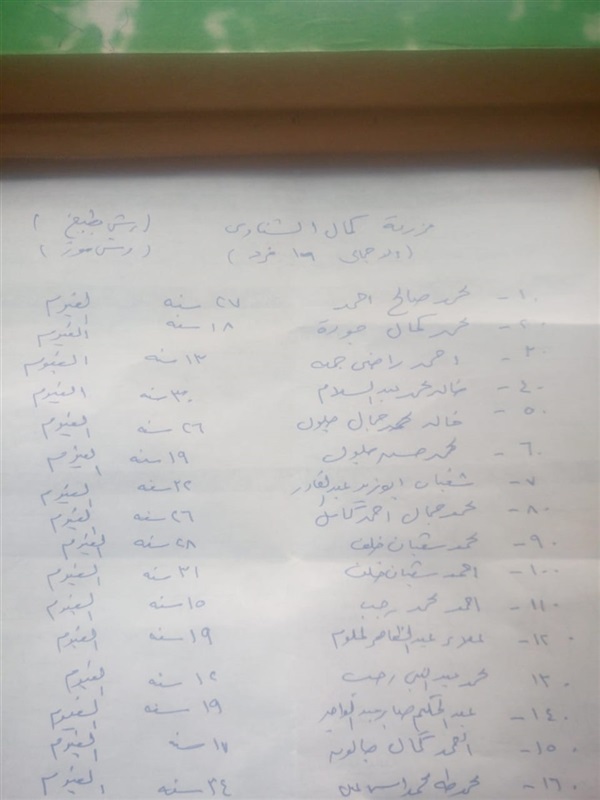 مزرعة كمال الشناوى (رش طبيخ)
(الاجمالى ١٦ فرد) (رش موز)
١- محمد صالح احمد ٢٧ سنه الفيوم
٢- محمد كمال جودة ١٨ سنه الفيوم
٣- احمد راضى جمعه ١٣ سنه الفيوم
٤- خالد محمد عبد السلام ٣٠ سنه الفيوم
٥- خالد محمد جمال ٢٦ سنه الفيوم
٦- محمد حسن ١٩ سنه الفيوم
٧- شعبان ابوزيد عبد القادر ٢٢ سنه الفيوم
٨- محمد جمال احمد كامل ٢٦ سنه الفيوم
٩- محمد شعبان خلف ٢٨ سنه الفيوم
١٠- احمد شعبان خلف ٢١ سنه الفيوم
١١- احمد محمد رجب ١٥ سنه الفيوم
١٢- علاء عبد الظاهر ١٩ سنه الفيوم
١٣ محمد عبد النبى رجب ١٢ سنه الفيوم
١٤- عبد الحكيم صابر عبد الواحد ١٩ سنه الفيوم
١٥- احمد كمال ١٧ سنه الفيوم
١٦- محمد طه محمد ٢٤ سنه الفيوم